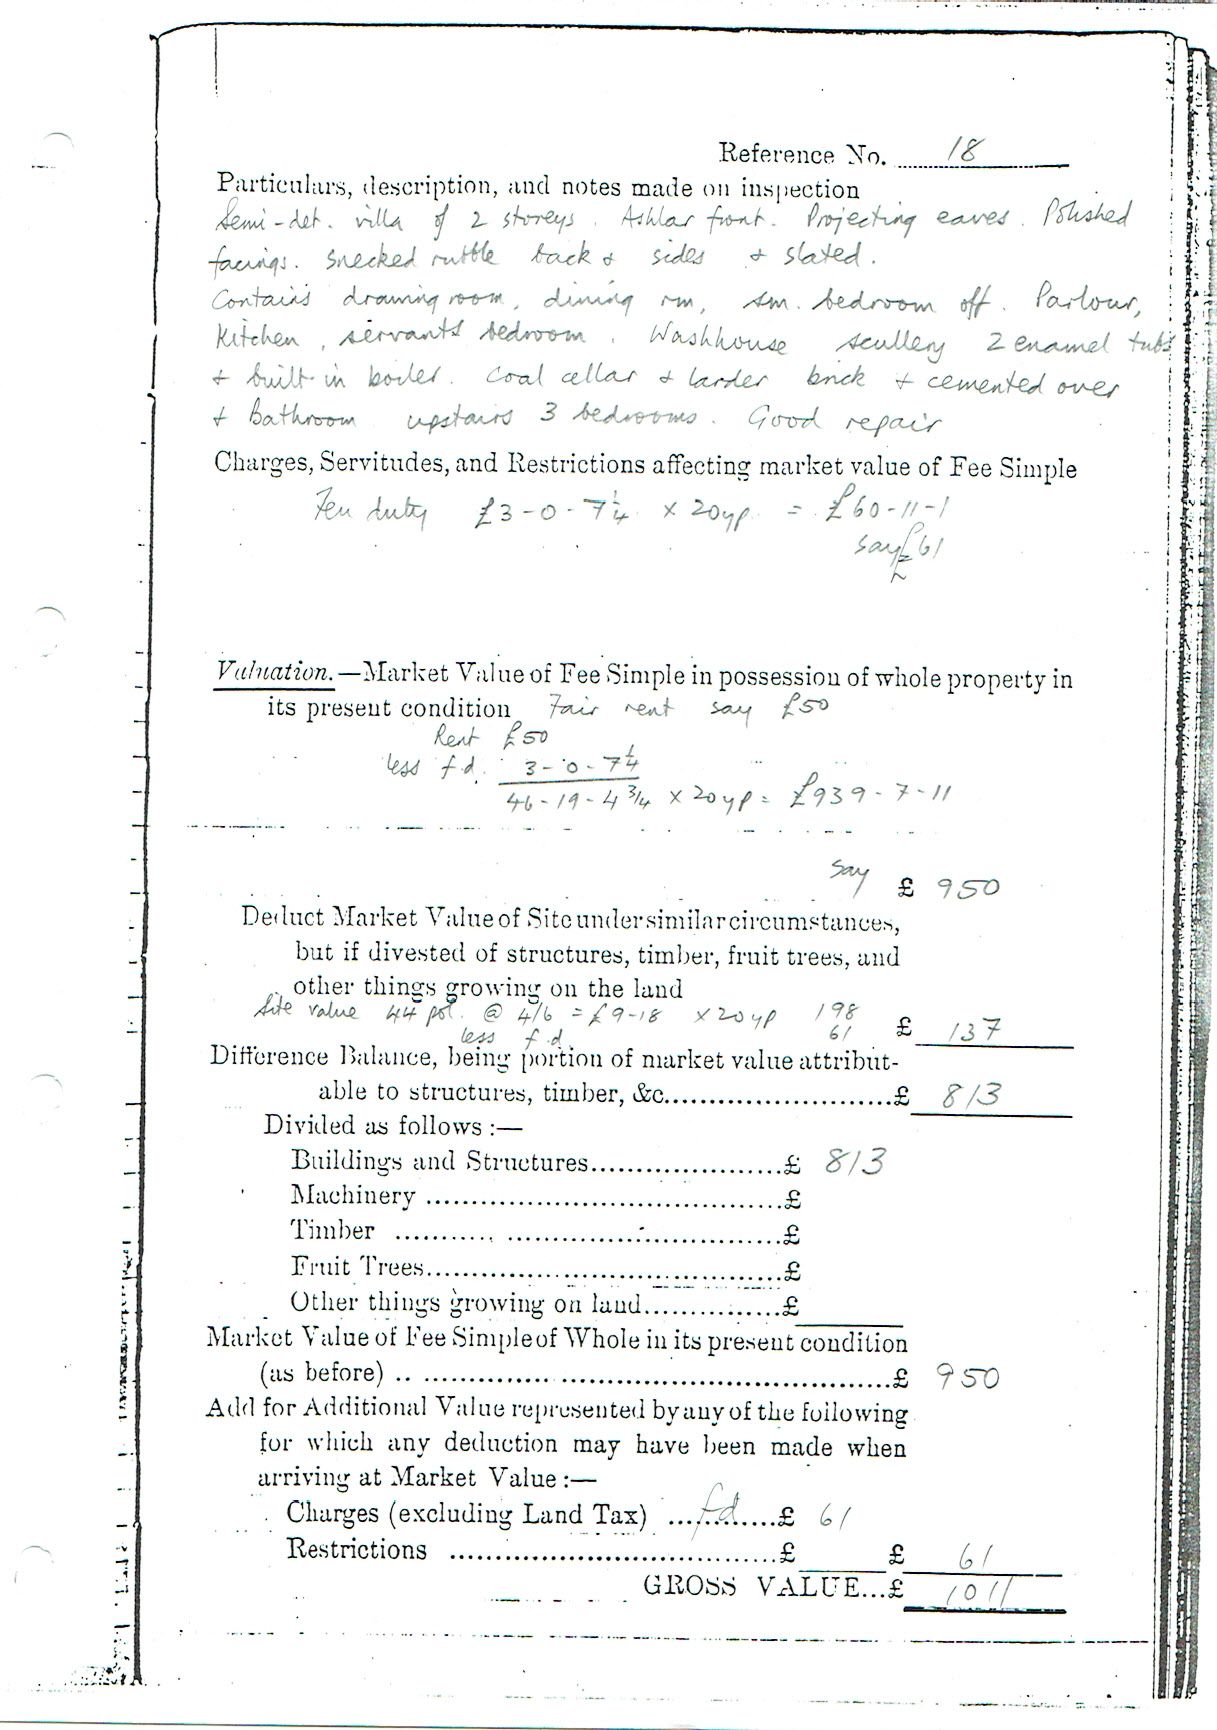 Reference No. 18
Particulars, description, and notes made on inspection
Semi-det. villa of 2 storeys. Ashlar front. Projecting eaves. Polished
facings. Snecked rubble back & sides & slated.
Contains drawing room, dining rm, sm. bedroom off. Parlour,
Kitchen, servants bedroom. Washhouse scullery 2 enamel tubs
& built-in boiler. Coal cellar & larder brick & cemented over
& Bathroom upstairs 3 bedrooms. Good repair
Charges, Servitudes, and Restrictions affecting market value of Fee Simple
Feu duty £3-0-7¼ x 20yp. = £60-11-1
say £61
Valuation.—Market Value of Fee Simple in possession of whole property in
its present condition Fair rent say £50
Rent £50
less f.d. 3-0-7¼
46-19-4¾ x 20yp = £939-7-11
say £ 950
Deduct Market Value of Site under similar circumstances,
but if divested of structures, timber, fruit trees, and
other things growing on the land
Site value 44 pol. @ 4/6 = £9-18 x 20yp 198
less f.d. 61 £ 137
Difference Balance, being portion of market value attribut-
able to structures, timber, &c.........................£ 813
Divided as follows :—
Buildings and Structures......................£ 813
Machinery ........................................£
Timber ........................................£
Fruit Trees........................................£
Other things growing on land...............£
Market Value of Fee Simple of Whole in its present condition
(as before) .. ..................................................£ 950
Add for Additional Value represented by any of the following
for which any deduction may have been made when
arriving at Market Value :—
Charges (excluding Land Tax) ...fd......£ 61
Restrictions ......................................£ £ 61
GROSS VALUE...£ 1011